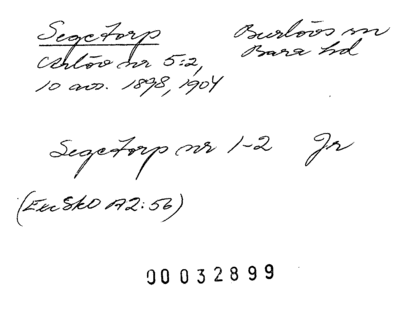 Segetorp Burlövs sn
Arlöv nr 5:2, Bara hd
10 avs. 1898, 1904
Segetorp nr 1-2 Jr
(EceSkO A2:56)
00032899